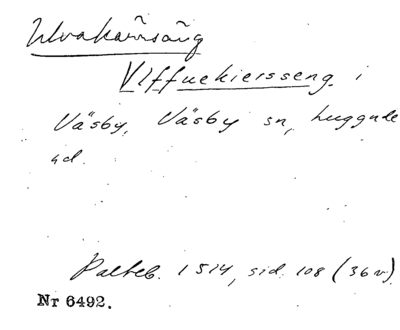 Ulvakärrsäng
Vlffuekiersseng i
Väsby, Väsby sn, Luggude
hd.
Palteb. 1514, sid. 108 (36v).
Nr 6492.